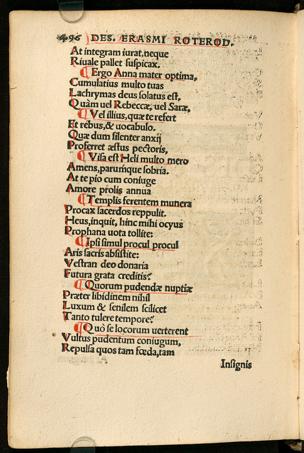 496 DES. ERASMI ROTEROD.
At integram iurat, neque
Riuale pallet suspicax.
¶ Ergo Anna mater optima,
Cumulatius multo tuas
Lachrymas deus solatus est,
Quàm uel Rebeccæ, uel Saræ,
¶ Vel illius, quæ te refert
Et rebus, & uocabulo.
Quæ dum silenter anxij
Proferret æstus pectoris,
¶ Visa est Heli multo mero
Amens, parumque sobria.
At te pio cum coniuge
Amore prolis annua
¶ Templis ferentem munera
Procax sacerdos reppulit.
Heus, inquit, hinc mihi ocyus
Prophana uota tollite:
¶ Ipsi simul procul procul
Aris sacris absistite:
Vestran deo donaria
Futura grata creditis?
¶ Quorum pudendæ nuptiæ
Præter libidinem nihil
Luxum & senilem scilicet
Tanto tulere tempore?
¶ Quó se locorum uerterent
Vultus pudentum coniugum,
Repulsa quos tam fœda, tam
Insignis